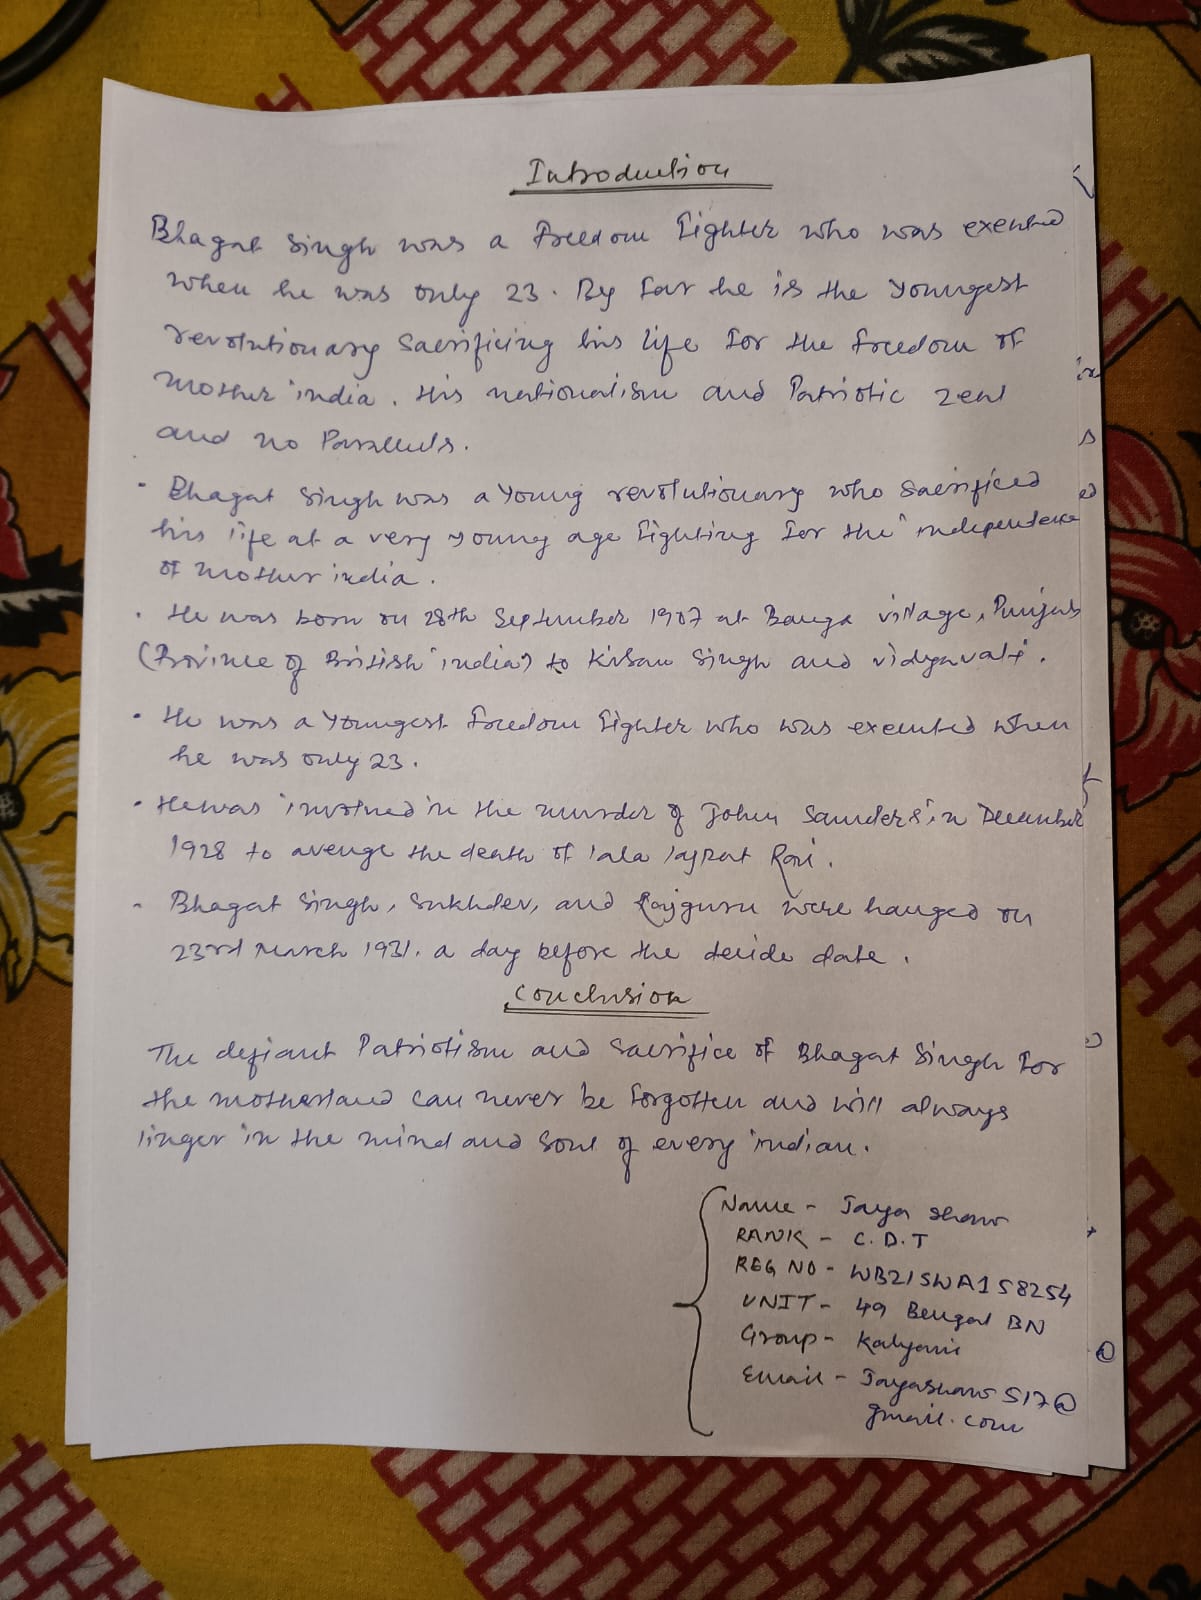 Introduction
Bhagat Singh was a freedom fighter who was exented
when he was only 23. By far he is the youngest
revolutionary sacrificing his life for the freedom of
mother india. His nationalism and Patriotic zeal
and no Parallels.
• Bhagat Singh was a young revolutionary who sacrificed
his life at a very young age fighting for the independence
of mother india.
• He was born on 28th September 1907 at Banga village, Punjab
(Province of British india) to Kishan Singh and vidyavati.
• He was a youngest freedom fighter who was executed when
he was only 23.
• He was involved in the murder of John Saunders in December
1928 to avenge the death of lala lajpat Rai.
- Bhagat Singh, Sukhdev, and Rajguru were hanged on
23rd March 1931. a day before the decide date.
Conclusion
The defiant Patriotism and sacrifice of Bhagat Singh for
the motherland can never be forgotten and will always
linger in the mind and soul of every indian.
Name - Jaya Shaw
RANK - C.D.T
REG NO - WB21SWA158254
UNIT - 49 Bengal BN
Group - Kalyani
Email - Jayashaw517@
gmail.com